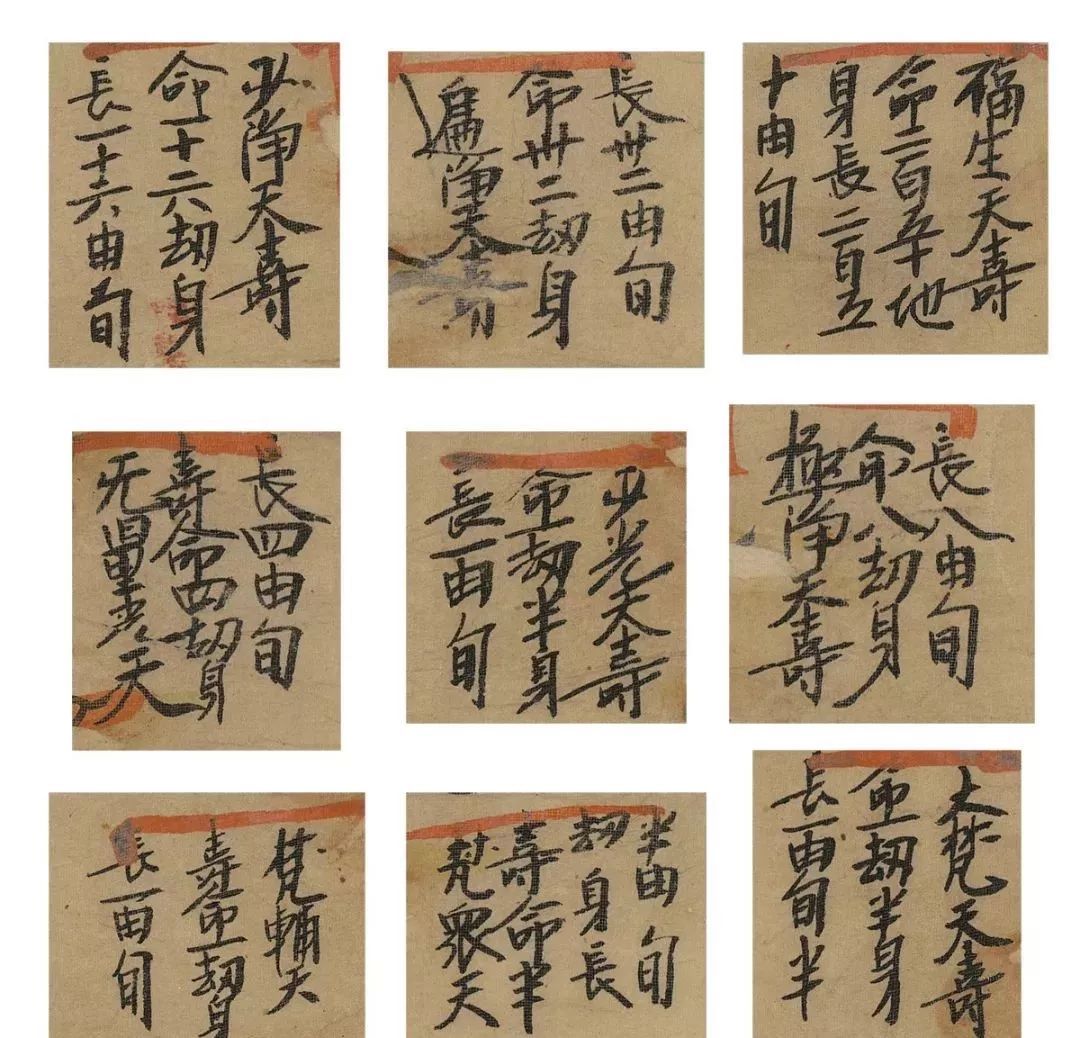 少淨天壽
命十六劫身
長一十六由旬
遍淨天壽
命卅二劫身
長卅二由旬
福生天壽
命二百五十地
身長二百五
十由旬
无量光天
壽命四劫身
長四由旬
少光天壽
命一劫半身
長一由旬
極淨天壽
命八劫身
長八由旬
梵輔天
壽命一劫身
長一由旬
梵眾天
壽命半
劫身長
半由旬
大梵天壽
命一劫半身
長一由旬半